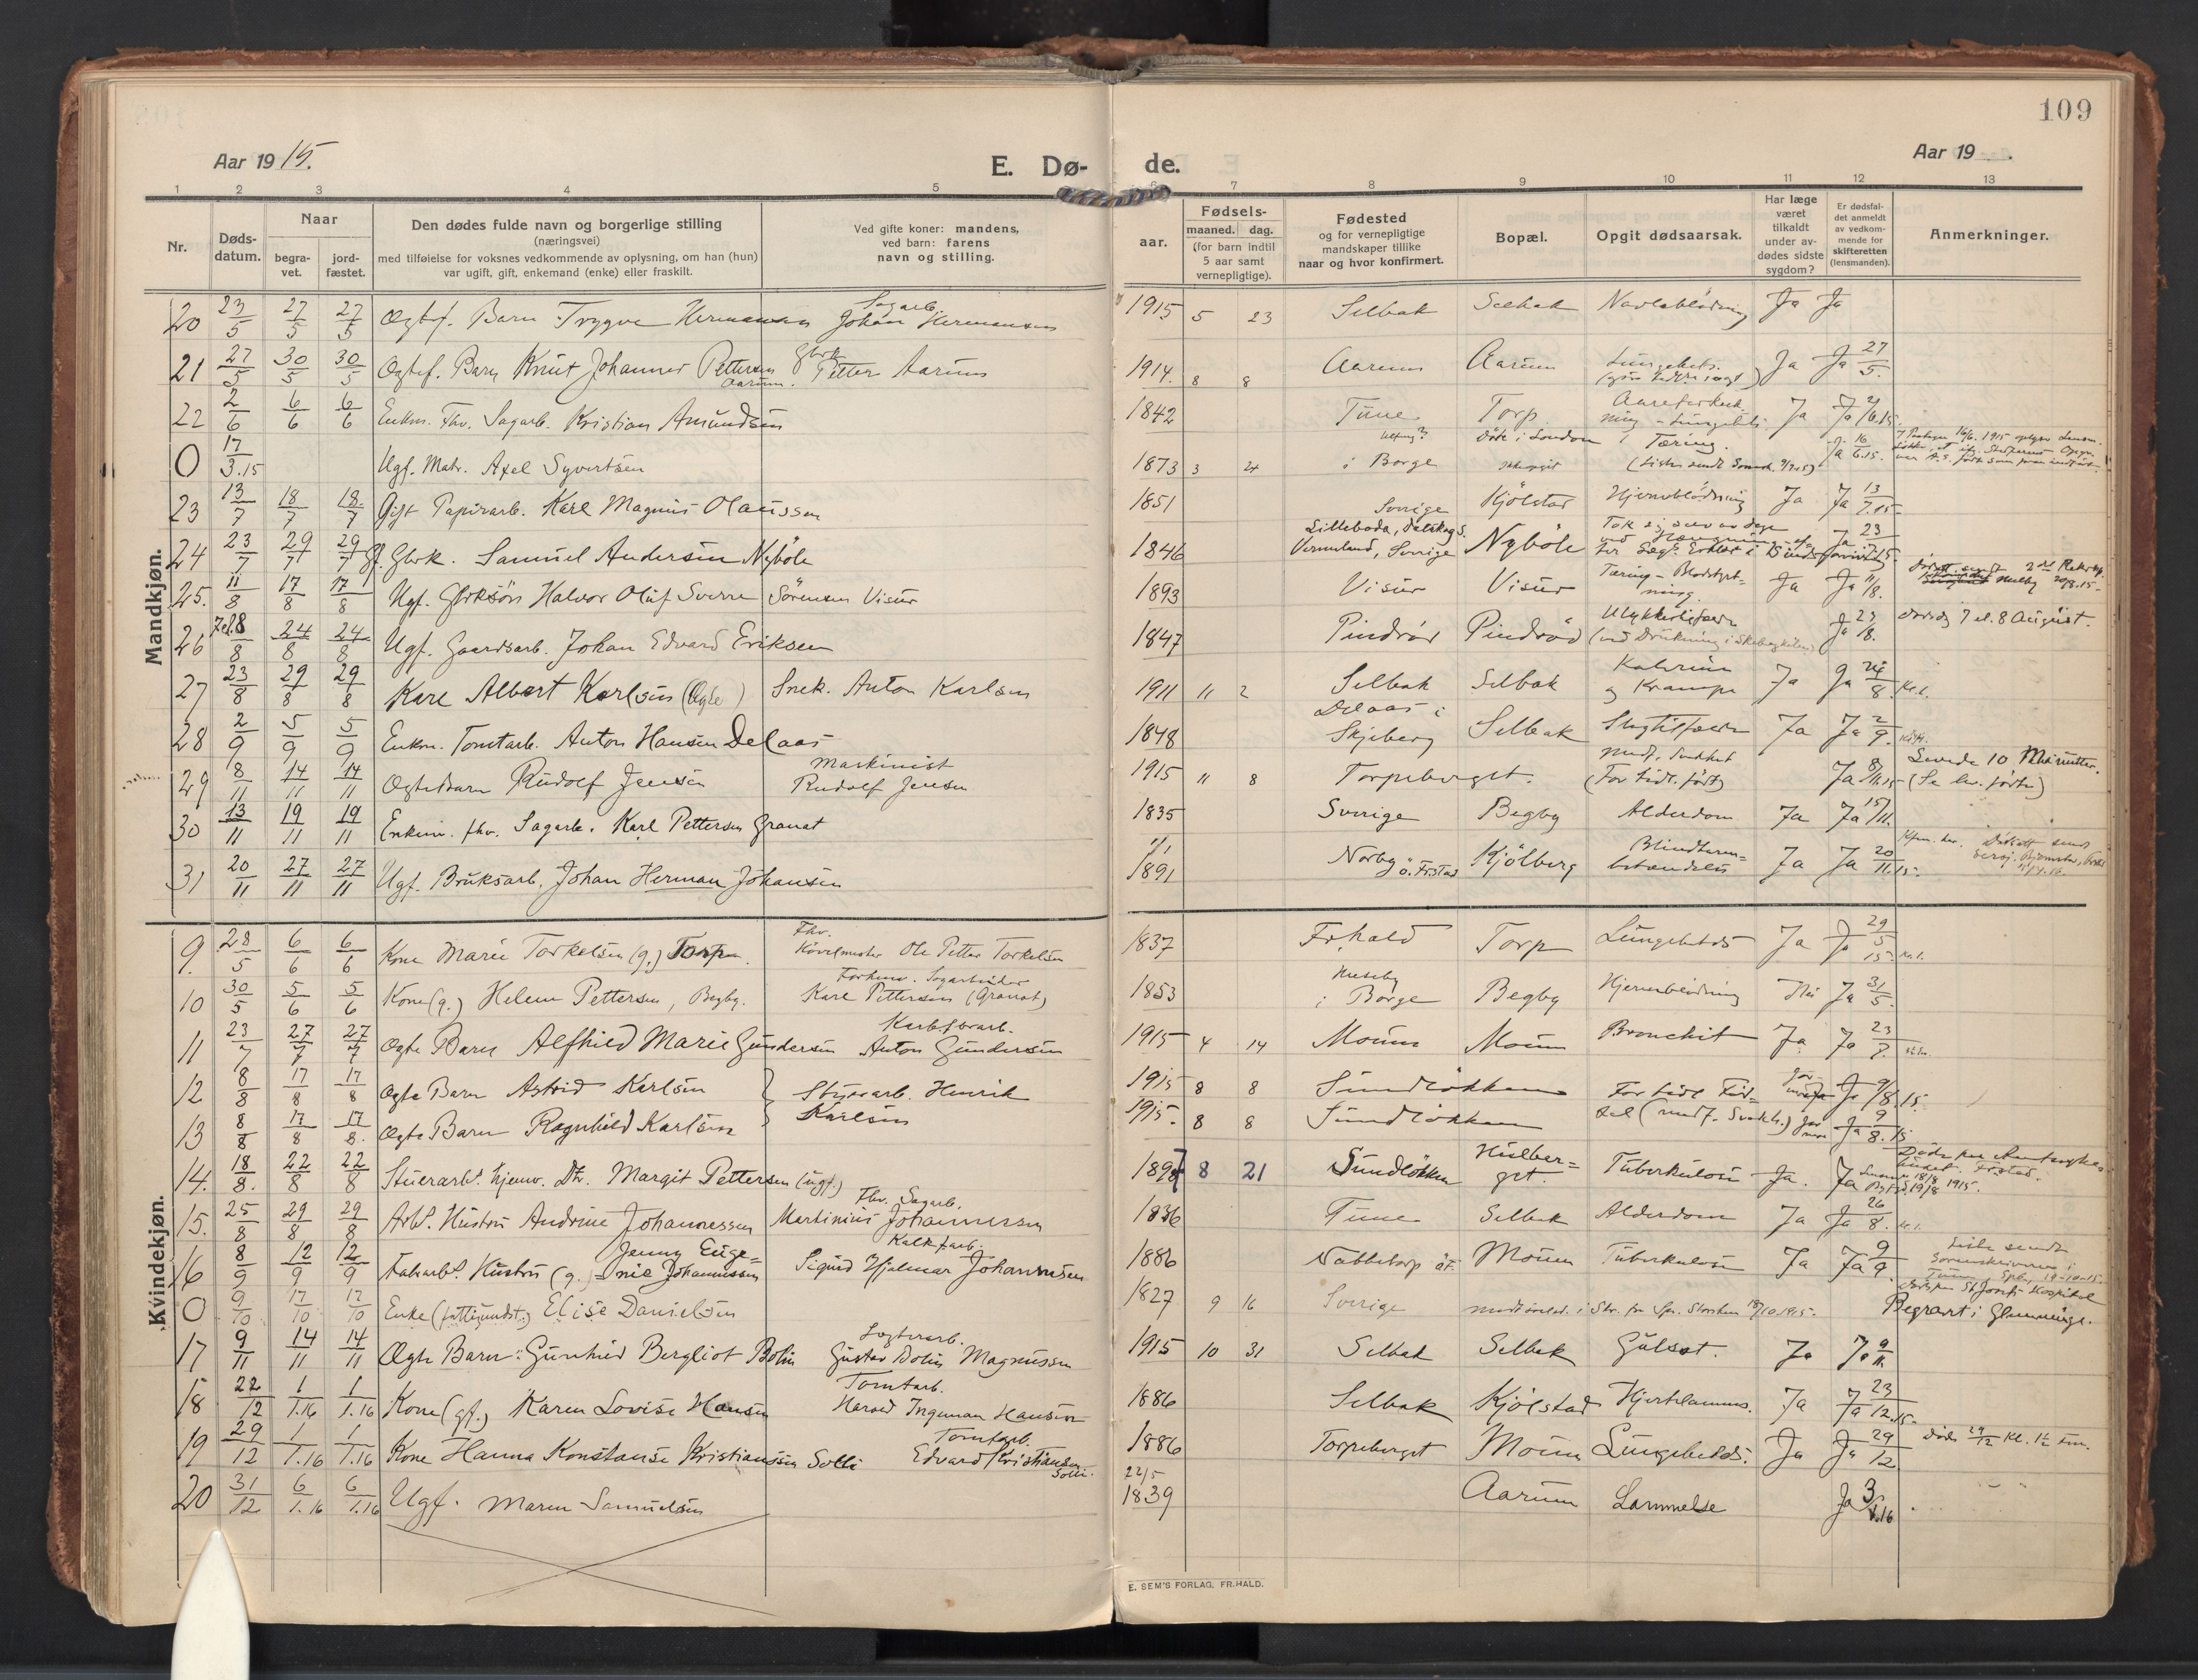 109
Aar 19 15.
E. Dø-
de.
Aar 19
1 2 3 4 5 6 7 8 9 10 11 12 13
Nr.
Døds-
datum.
Naar
begra-
vet.
jord-
fæstet.
Den dødes fulde navn og borgerlige stilling
(næringsvei)
med tilføielse for voksnes vedkommende av oplysning, om han (hun)
var ugift, gift, enkemand (enke) eller fraskilt.
Ved gifte koner: mandens,
ved barn: farens
navn og stilling.
aar.
Fødsels-
maaned. dag.
(for barn indtil
5 aar samt
vernepligtige).
Fødested
og for vernepligtige
mandskaper tillike
naar og hvor konfirmert.
Bopæl.
Opgit dødsaarsak.
Har læge
været
tilkaldt
under av-
dødes sidste
sygdom?
Er dødsfal-
det anmeldt
av vedkom-
mende for
skifteretten
(lensmanden).
Anmerkninger.
Mandkjøn.
20 23/5 27/5 27/5 Ægtef. Barn Trygve Hermansen Sagarb. Johan Hermansen 1915 5 23 Selbak Selbak Navleblödning Ja Ja
21 27/5 30/5 30/5 Ægtef. Barn Knut Johannes Pettersen Aarum. Gbrk Petter Aarum 1914. 8 8 Aarum Aarum Lungebets. Ja Ja 27/5.
22 2/6 6/6 6/6 Enkm. Fhv. Sagarb. Kristian Amundsen 1842 Tune Torp Aareforkalk-
ning - Lungebets. Ja Ja 2/6.15.
0 17/3.15 Ugf. Matr. Axel Syvertsen 1873 3 24 i Borge Döde i London Tæring. Ja 16/6.15.
23 13/7 18/7 18/7 Gift Papirarb. Karl Magnus Olaussen 1851 Sverige Kjölstad Hjerneblödning Ja Ja 13/7.15
24 23/7 29/7 29/7 Gf. Gbrk. Samuel Andersen Nyböle 1846 Vermland, Sverige Nyböle Ja 23/7.15.
25. 11/8 17/8 17/8 Ugf. Gbrksön Halvor Oluf Sverre Sörensen Visur 1893 Visur Visur Tæring - Blodstyrt-
ning. Ja Ja 11/8.
26 7 el. 8/8 24/8 24/8 Ugf. Gaardsarb. Johan Edvard Eriksen 1847 Pindröd Pindröd Ulykkestilfælde Ja 23/8. 7 el. 8 August.
27 23/8 29/8 29/8 Karl Albert Karlsen (Ægte) Snek. Anton Karlsen 1911 11 2 Selbak Selbak Kolerine
og Krampe Ja Ja 24/8.
28 2/9 5/9 5/9 Enkm. Tomtarb. Anton Hansen Delaas 1848 Delaas i
Skjeberg Selbak Slagtilfælde Ja Ja 2/9.
29 8/11 14/11 14/11 Ægte Barn Rudolf Jensen Maskinist
Rudolf Jensen 1915 11 8 Torpeberget. Medf. Svakhet
(For tidl. født) Ja 8/11.15 Levede 10 Minutter.
(Se lev. fødte)
30 13/11 19/11 19/11 Enkem. fhv. Sagarb. Karl Pettersen Granat 1835 Sverige Begby Alderdom Ja Ja 15/11.
31 20/11 27/11 27/11 Ugf. Bruksarb. Johan Herman Johansen 1/1 1891 Norby ö. Frstad Kjölberg Blindtarm-
betændelse Ja Ja 20/11.15.
Kvindekjøn.
9. 28/5 6/6 6/6 Kone Marie Torkelsen (g.) Torp. Fhv.
Ole Petter Torkelsen 1837 Fr.hald Torp Lungebetds Ja Ja 29/5 15.
10 30/5 5/6 5/6 Kone (g.) Helene Pettersen, Begby. Forhenv. Sagarbeider
Karl Pettersen (Granat) 1853 i Borge Begby Hjerneblödning Nei Ja 31/5.
11 23/7 27/7 27/7 Ægte Barn Alfhild Marie Gundersen Karbf.brarb.
Anton Gundersen 1915 4 14 Moum Moum Bronchit Ja Ja 23/7.
12 8/8 17/8 17/8 Ægte Barn Astrid Karlsen Stuerarb. Henrik
Karlsen 1915 8 8 Sundlökken For tidl Fød-
sel (medf. Svakh.) Ja 9/8.15.
13 8/8 17/8 17/8. Ægte Barn Ragnhild Karlsen 1915. 8 8 Sundlökken Ja 9/8.15
14. 18/8. 22/8 22/8 Stuerarb. hjemv. Dtr. Margit Pettersen (ugf.) 1897 8 21 Sundlökken Hulber-
get. Tuberkulose Ja. Ja
15. 25/8 29/8 29/8 Arbs. Hustru Andrine Johannessen Fhv. Sagarb.
Martinius Johannessen 1836 Tune Selbak Alderdom Ja Ja 26/8.
16 8/9 12/9 12/9 Fabrarbs. Hustru (g.) Jenny Euge-
nie Johannessen Kalkfarb.
Sigurd Hjalmar Johannesen 1886 Nabbetorp Moum Tuberkulose Ja Ja 9/9.
0 9/10 17/10 17/10 Enke (fattigundst.) Elise Danielsen 1827 9 16 Sverige Begravt i Glemminge.
17 9/11 14/11 14/11 Ægte Barn: Gunhild Bergliot Bolin Gustav Bolin Magnussen 1915 10 31 Selbak Selbak Gulsot. Ja Ja 9/11.
18 22/12 1/1.16 1/1.16 Kone (gf.) Karen Lovise Hansen Tomtarb.
Harald Ingeman Hansen 1886 Selbak Kjölstad Hjertelammels. Ja Ja 23/12.15.
19 29/12 1/1.16 1/1.16 Kone Hanna Konstanse Kristiansen Solli Tomtarb.
Edvard Kristiansen
Solli. 1886 Torpeberget Moum Lungebetds. Ja Ja 29/12 Døde 29/12 Kl. 1½ Fm.
20 31/12 6/1.16 6/1.16 Ugf. Maren Samuelsen 22/5 1839 Aarum Lammelse Ja 3/1.16
E. SEM'S FORLAG, FR.HALD.